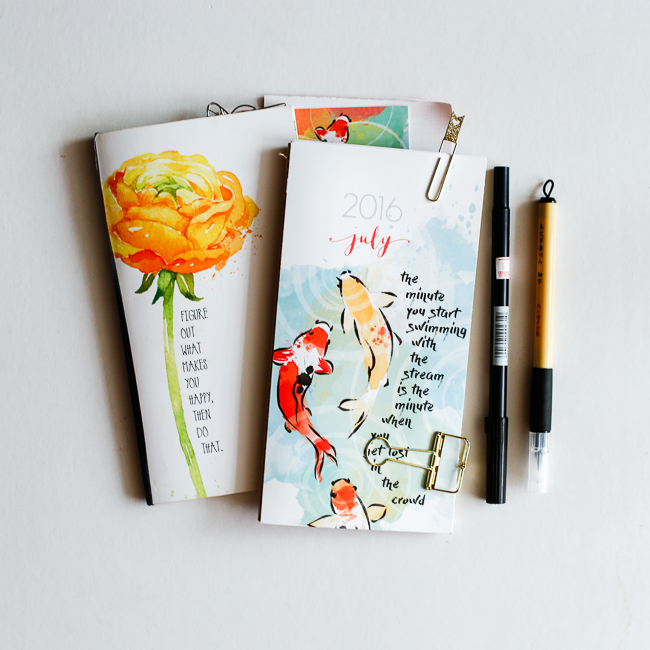 FIGURE
OUT
WHAT
MAKES
YOU
HAPPY,
THEN
DO
THAT.
2016
july
the
minute
you start
swimming
with
the
stream
is the
minute
when
you
get lost
in
the
crowd